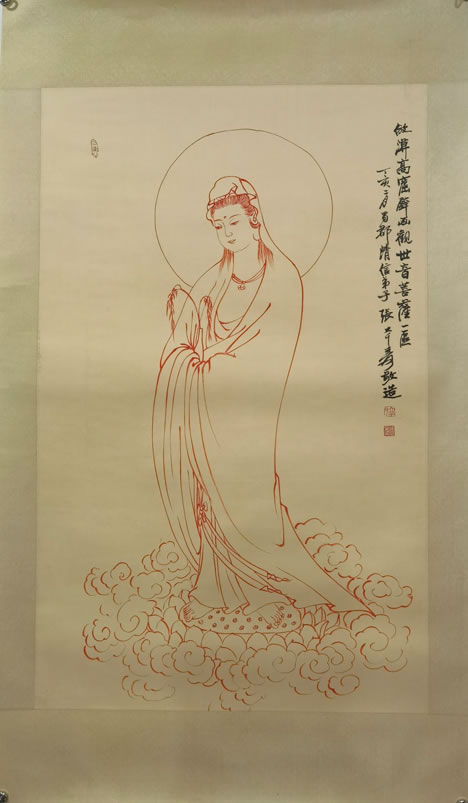 漠高窟壁画觀世音菩薩一區
丁亥二月蜀郡清信弟子張大千爰敬造